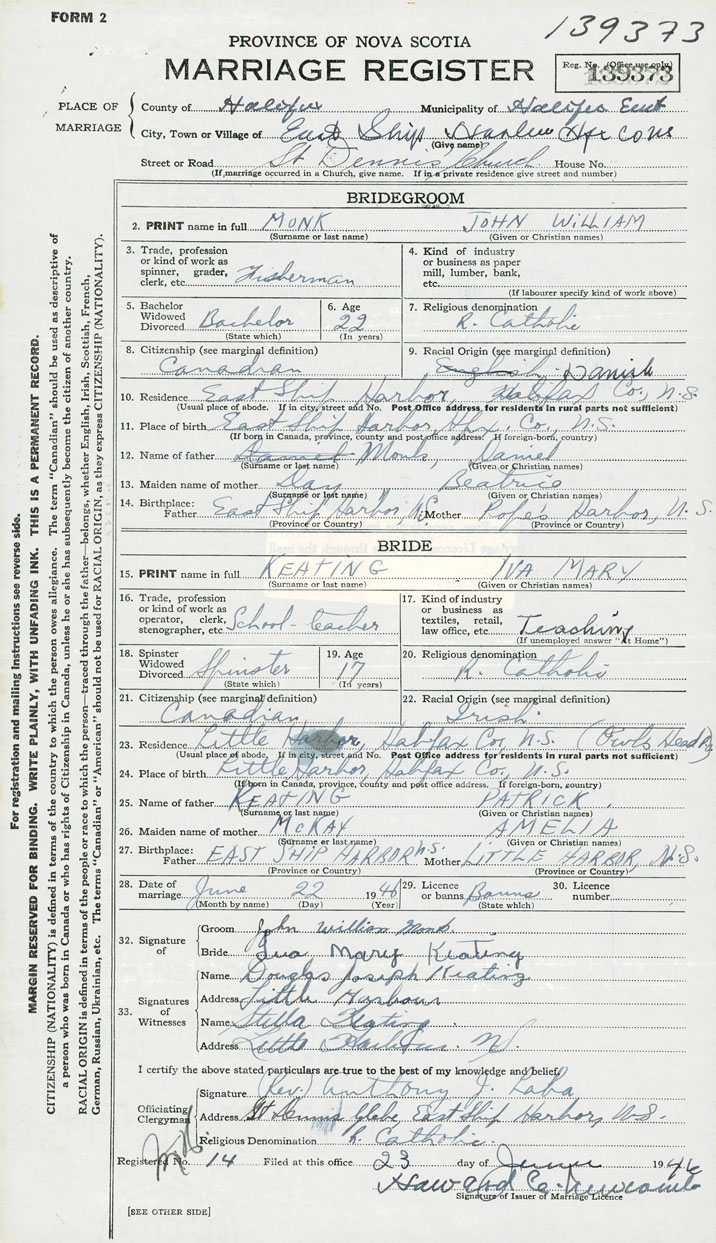 FORM 2
139373
PROVINCE OF NOVA SCOTIA
MARRIAGE REGISTER
Reg. No. (Office use only)
139373
PLACE OF MARRIAGE
County of Halifax Municipality of Halifax East
City, Town or Village of East Ship Harbor Hfx Co NS
(Give name)
Street or Road St Dennis Church House No.
(If marriage occurred in a Church, give name. If in a private residence give street and number)
BRIDEGROOM
2. PRINT name in full MONK JOHN WILLIAM
(Surname or last name) (Given or Christian names)
3. Trade, profession or kind of work as spinner, grader, clerk, etc. Fisherman
4. Kind of industry or business as paper mill, lumber, bank, etc.
(If labourer specify kind of work above)
5. Bachelor Widowed Divorced Bachelor
(State which)
6. Age 22
(In years)
7. Religious denomination R. Catholic
8. Citizenship (see marginal definition) Canadian
9. Racial Origin (see marginal definition) English Danish
10. Residence East Ship Harbor, Halifax Co., N.S.
(Usual place of abode. If in city, street and No. Post Office address for residents in rural parts not sufficient)
11. Place of birth East Ship Harbor, Hfx. Co., N.S.
(If born in Canada, province, county and post office address. If foreign-born, country)
12. Name of father Daniel Monk, Daniel
(Surname or last name) (Given or Christian names)
13. Maiden name of mother Day Beatrice
(Surname or last name) (Given or Christian names)
14. Birthplace: Father East Ship Harbor, N.S. Mother Popes Harbor, N.S.
(Province or Country) (Province or Country)
BRIDE
15. PRINT name in full KEATING IVA MARY
(Surname or last name) (Given or Christian names)
16. Trade, profession or kind of work as operator, clerk, stenographer, etc. School-teacher
17. Kind of industry or business as textiles, retail, law office, etc. Teaching
(If unemployed answer "At Home")
18. Spinster Widowed Divorced Spinster
(State which)
19. Age 17
(In years)
20. Religious denomination R. Catholic
21. Citizenship (see marginal definition) Canadian
22. Racial Origin (see marginal definition) Irish
23. Residence Little Harbor, Halifax Co., N.S. (Owls Head
(Usual place of abode. If in city, street and No. Post Office address for residents in rural parts not sufficient)
24. Place of birth Little Harbor, Halifax Co., N.S.
(If born in Canada, province, county and post office address. If foreign-born, country)
25. Name of father KEATING PATRICK
(Surname or last name) (Given or Christian names)
26. Maiden name of mother McKAY AMELIA
(Surname or last name) (Given or Christian names)
27. Birthplace: Father EAST SHIP HARBOR N.S. Mother LITTLE HARBOR, N.S.
(Province or Country) (Province or Country)
28. Date of marriage June 22 1946
(Month by name) (Day) (Year)
29. Licence or banns Banns
(State which)
30. Licence number
32. Signature of
Groom John William Monk
Bride Iva Mary Keating
33. Signatures of Witnesses
Name Douglas Joseph Keating
Address Little Harbour
Name Stella Keating
Address Little Harbour N.S.
I certify the above stated particulars are true to the best of my knowledge and belief.
Officiating Clergyman
Signature (Rev.) Anthony J. Laba
Address St Dennis Glebe, East Ship Harbor, N.S.
Religious Denomination R. Catholic
Registered No. 14 Filed at this office 23 day of June 1946
Howard Newcomb
Signature of Issuer of Marriage Licence
[SEE OTHER SIDE]
For registration and mailing instructions see reverse side.
MARGIN RESERVED FOR BINDING. WRITE PLAINLY, WITH UNFADING INK. THIS IS A PERMANENT RECORD.
CITIZENSHIP (NATIONALITY) is defined in terms of the country to which the person owes allegiance. The term "Canadian" should be used as descriptive of
a person who was born in Canada or who has rights of Citizenship in Canada, unless he or she has subsequently become the citizen of another country.
RACIAL ORIGIN is defined in terms of the people or race to which the person—traced through the father—belongs, whether English, Irish, Scottish, French,
German, Russian, Ukrainian, etc. The terms "Canadian" or "American" should not be used for RACIAL ORIGIN, as they express CITIZENSHIP (NATIONALITY).